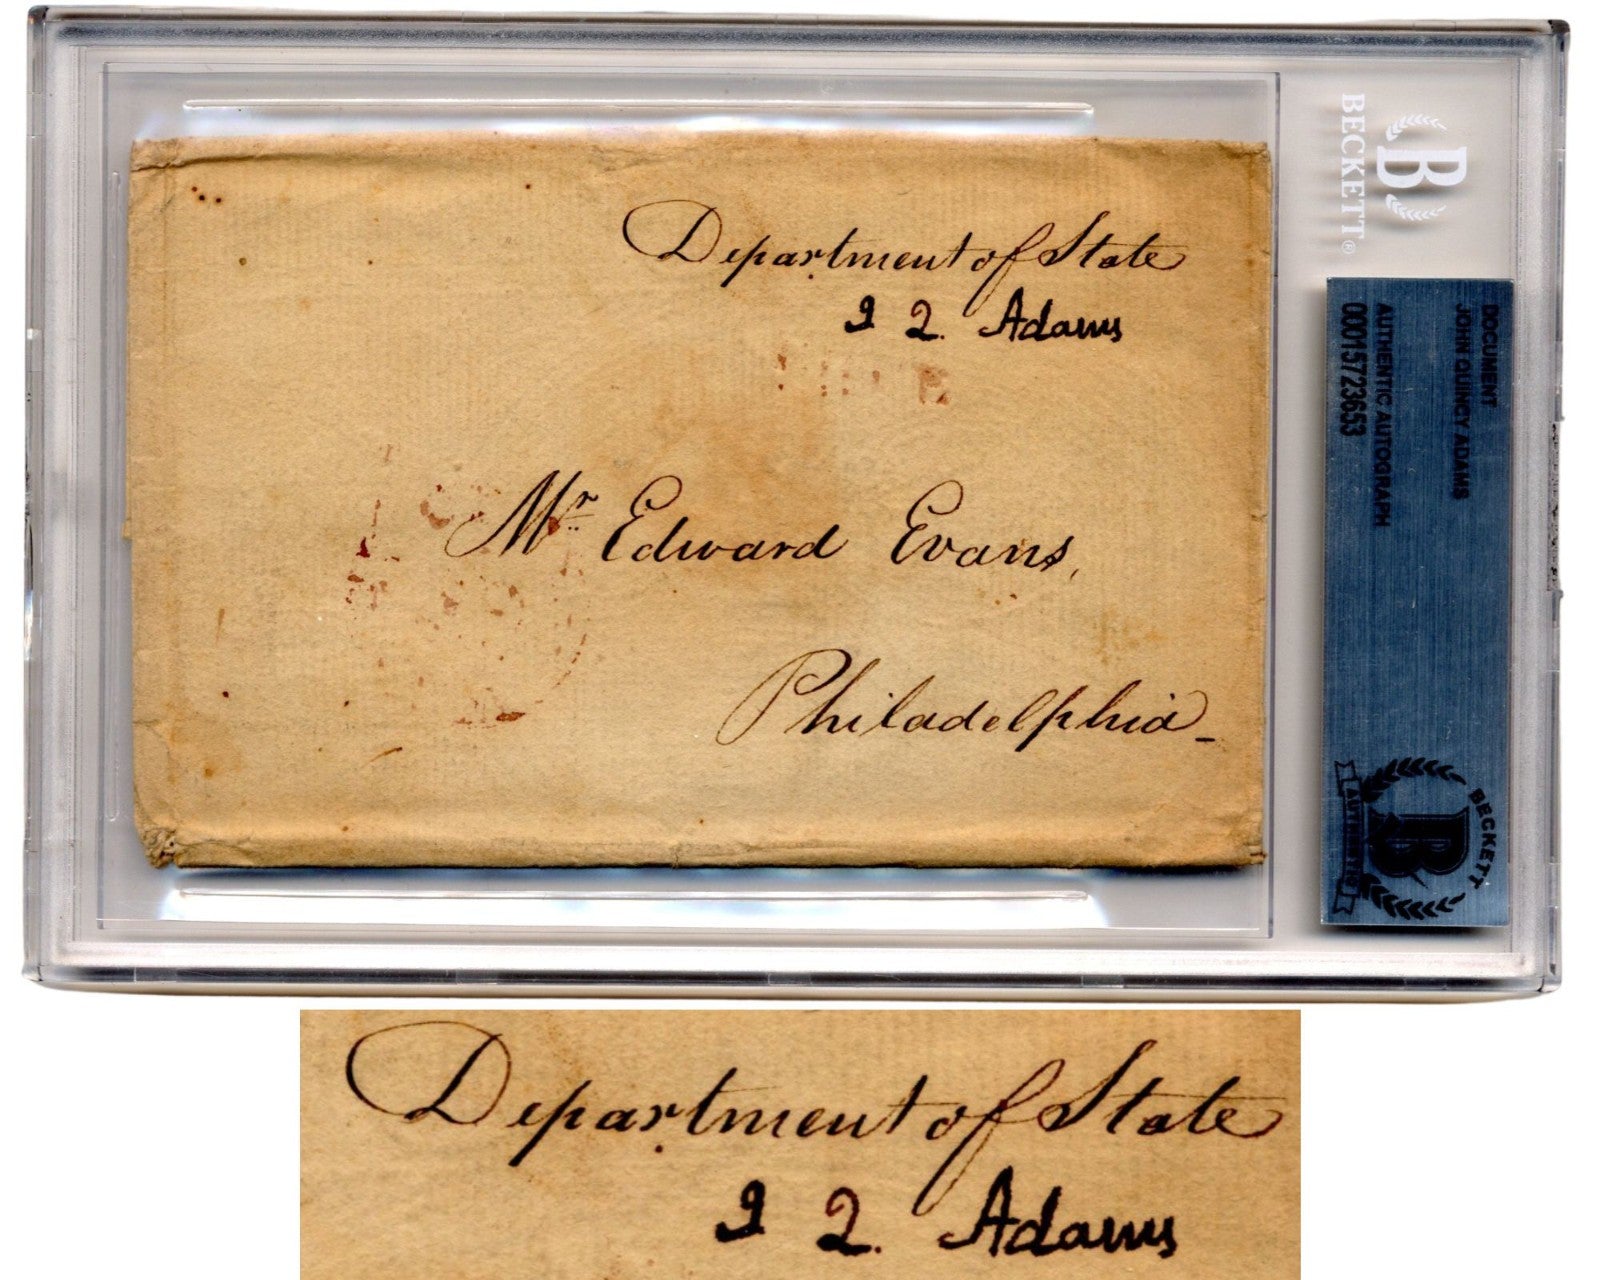 Department of State
J Q. Adams
Mr Edward Evans,
Philadelphia_
B
BECKETT®
DOCUMENT
JOHN QUINCY ADAMS
AUTHENTIC AUTOGRAPH
00015723653
BECKETT
B
AUTHENTIC
Department of State
J Q. Adams